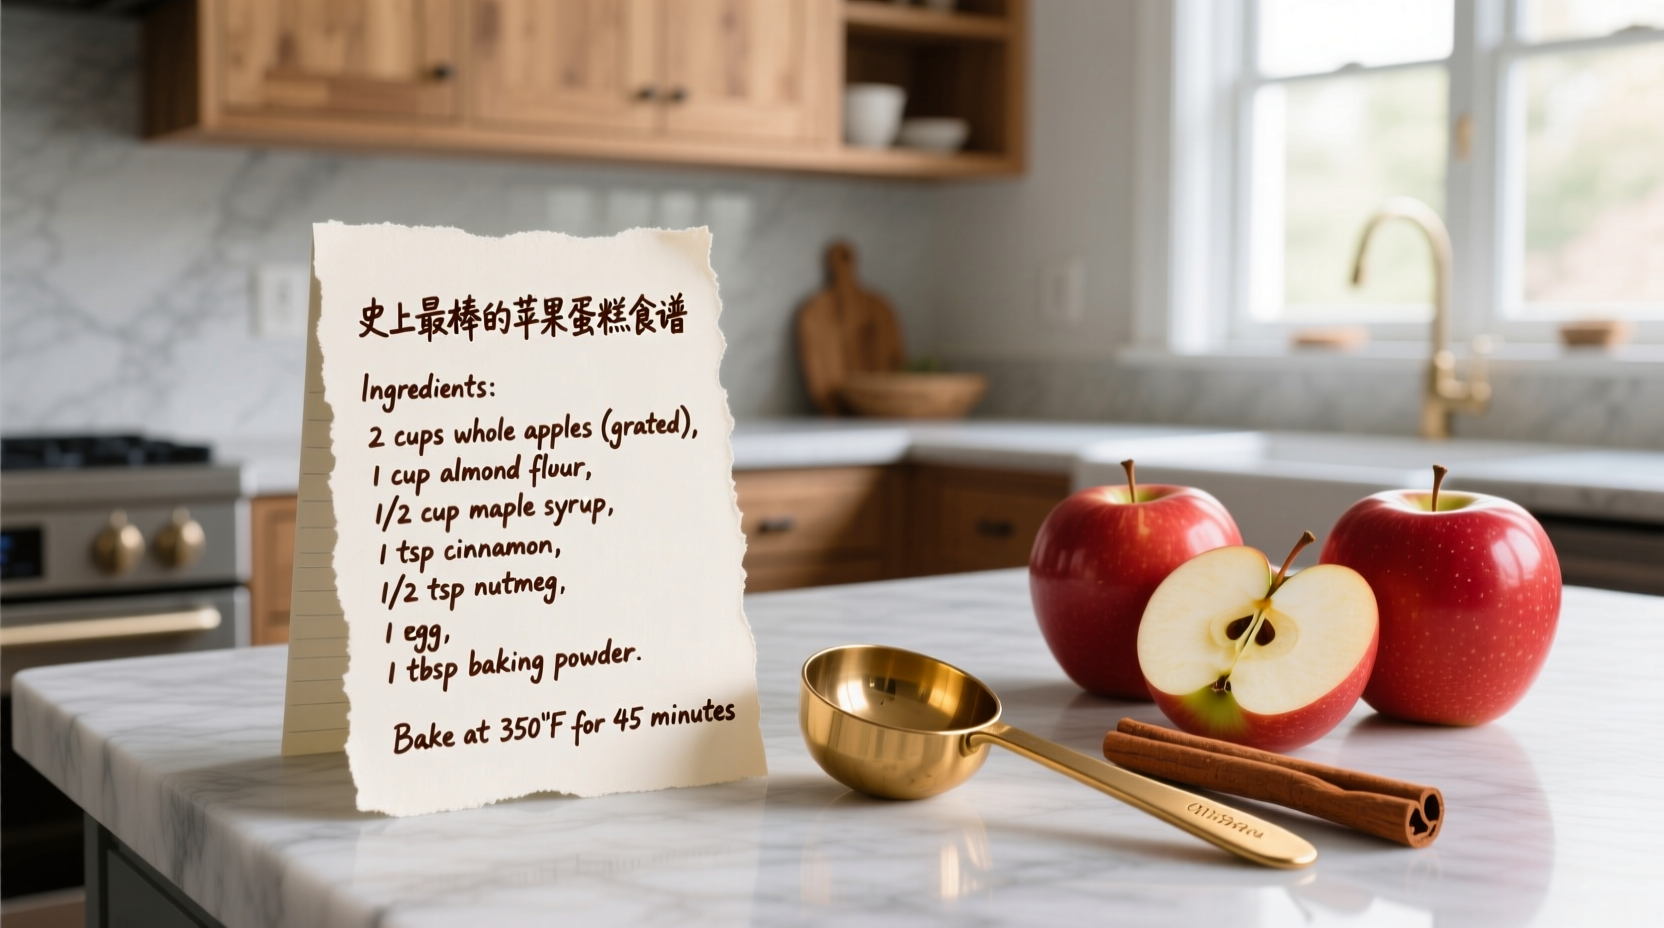 史上最棒的苹果蛋糕食谱
Ingredients:
2 cups whole apples (grated),
1 cup almond fluur,
1/2 cup maple syrup,
1 tsp cinnamon,
1/2 tsp nutmeg,
1 egg,
1 tbsp baking powder.
Bake at 350"F for 45 minutes